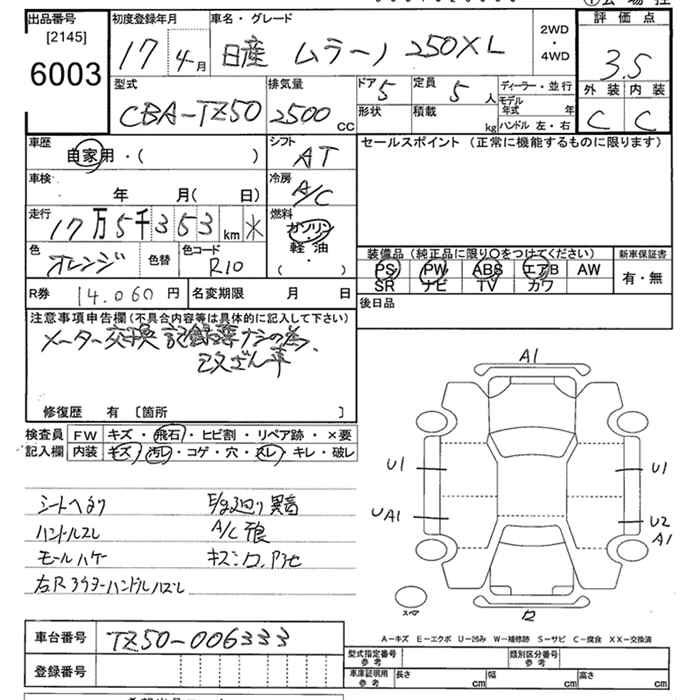 出品番号
[2145]
6003
初度登録年月
17 4月
車名・グレード
日産 ムラーノ 250XL
2WD
・
4WD
評価点
3.5
外装 内装
C C
型式
CBA-TZ50
排気量
2500 CC
ドア 5
形状
定員 5 人
積載 kg
ディーラー・並行
モデル
年式 年
ハンドル 左・右
車歴
自家用・( )
シフト
AT
セールスポイント (正常に機能するものに限ります)
車検
年 月( 日)
冷房
A/C
走行
17万5千353 km
燃料
ガソリン
軽油
( ・ )
色
オレンジ
色替
色コード
R10
装備品 (純正品に限り○をつけてください)
PS PW ABS エアB AW
SR ナビ TV カワ
新車保証書
有・無
R券 14.060円
名変期限 月 日
後日品
注意事項申告欄(不具合内容等は具体的に記入して下さい)
メーター交換 記録簿ナシの為、
改ざん車
修復歴 有 [箇所 ]
検査員
記入欄
FW キズ・飛石・ヒビ割・リペア跡・×要
内装 キズ・汚レ・コゲ・穴・スレ・キレ・破レ
シートへたり
E/g廻り異音
ハンドルスレ
A/C不良
モールハゲ
A1
U1 U1
UA1 U2
A1
スペア
A-キズ E-エクボ U-凹み W-補修跡 S-サビ C-腐食 XX-交換済
車台番号
TZ50-006333
登録番号
型式指定番号
参考
類別区分番号
参考
車庫証明用
参考
長さ cm
幅 cm
高さ cm